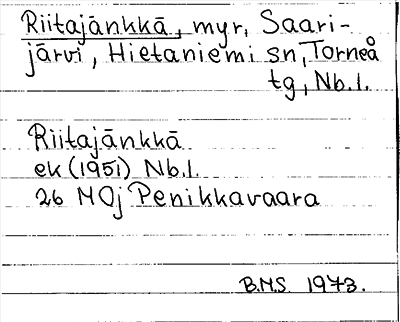 Riitajänkkä, myr, Saari-
järvi, Hietaniemi sn, Torneå
tg, Nb.l.
Riitajänkkä
ek (1951) Nb.l.
26 MOj Penikkavaara
B.M.S. 1973.